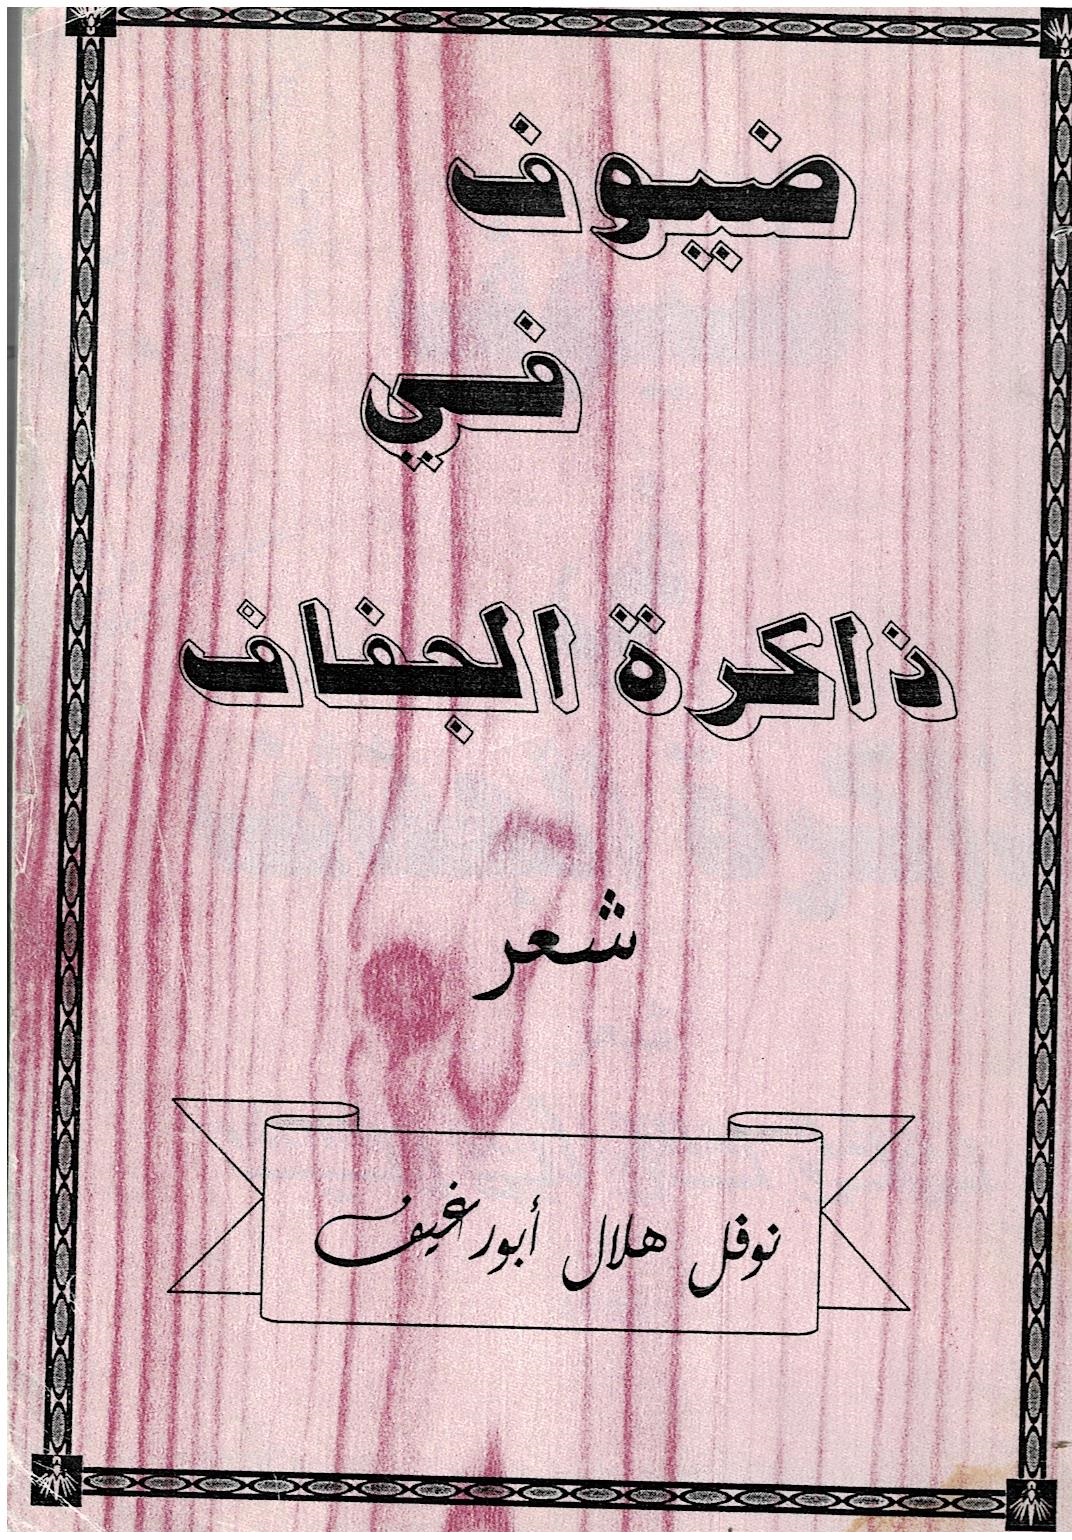 ضيوف
في
ذاكرة الجفاف
شعر
نوفل هلال أبورغيف